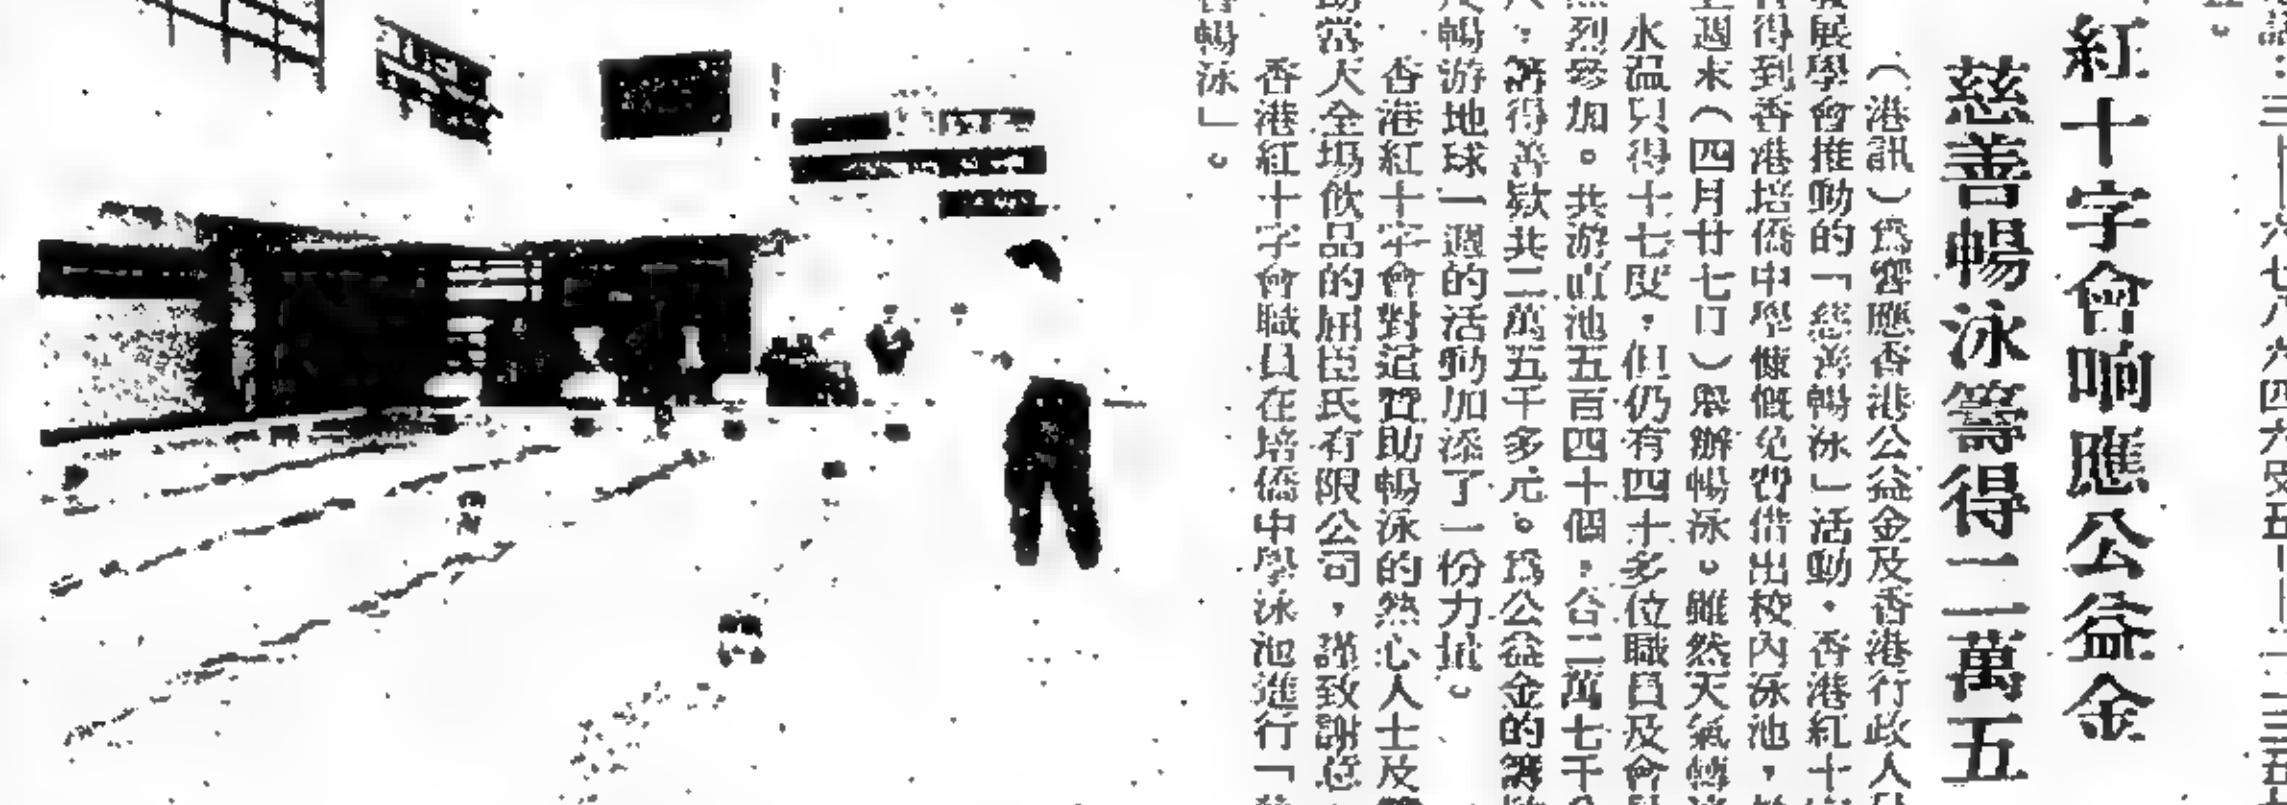 紅十字會响應公益金
慈善暢泳籌得二萬五
（港訊）爲響應香港公益金及香港行政人
發展學會推動的「慈善暢泳」活動，香港紅十
得到香港培僑中學慷慨免費借出校內泳池，
週末（四月廿七日）舉辦暢泳。雖然天氣轉
水温只得十七度，但仍有四十多位職員及會
熱烈參加。共游直池五百四十個，合二萬七千
籌得善欵共二萬五千多元。爲公益金的籌
暢游地球一週的活動加添了一份力量。
香港紅十字會對這贊助暢泳的熱心人士及
助當天全場飲品的屈臣氏有限公司，謹致謝意
香港紅十字會職員在培僑中學泳池進行「
善暢泳」。